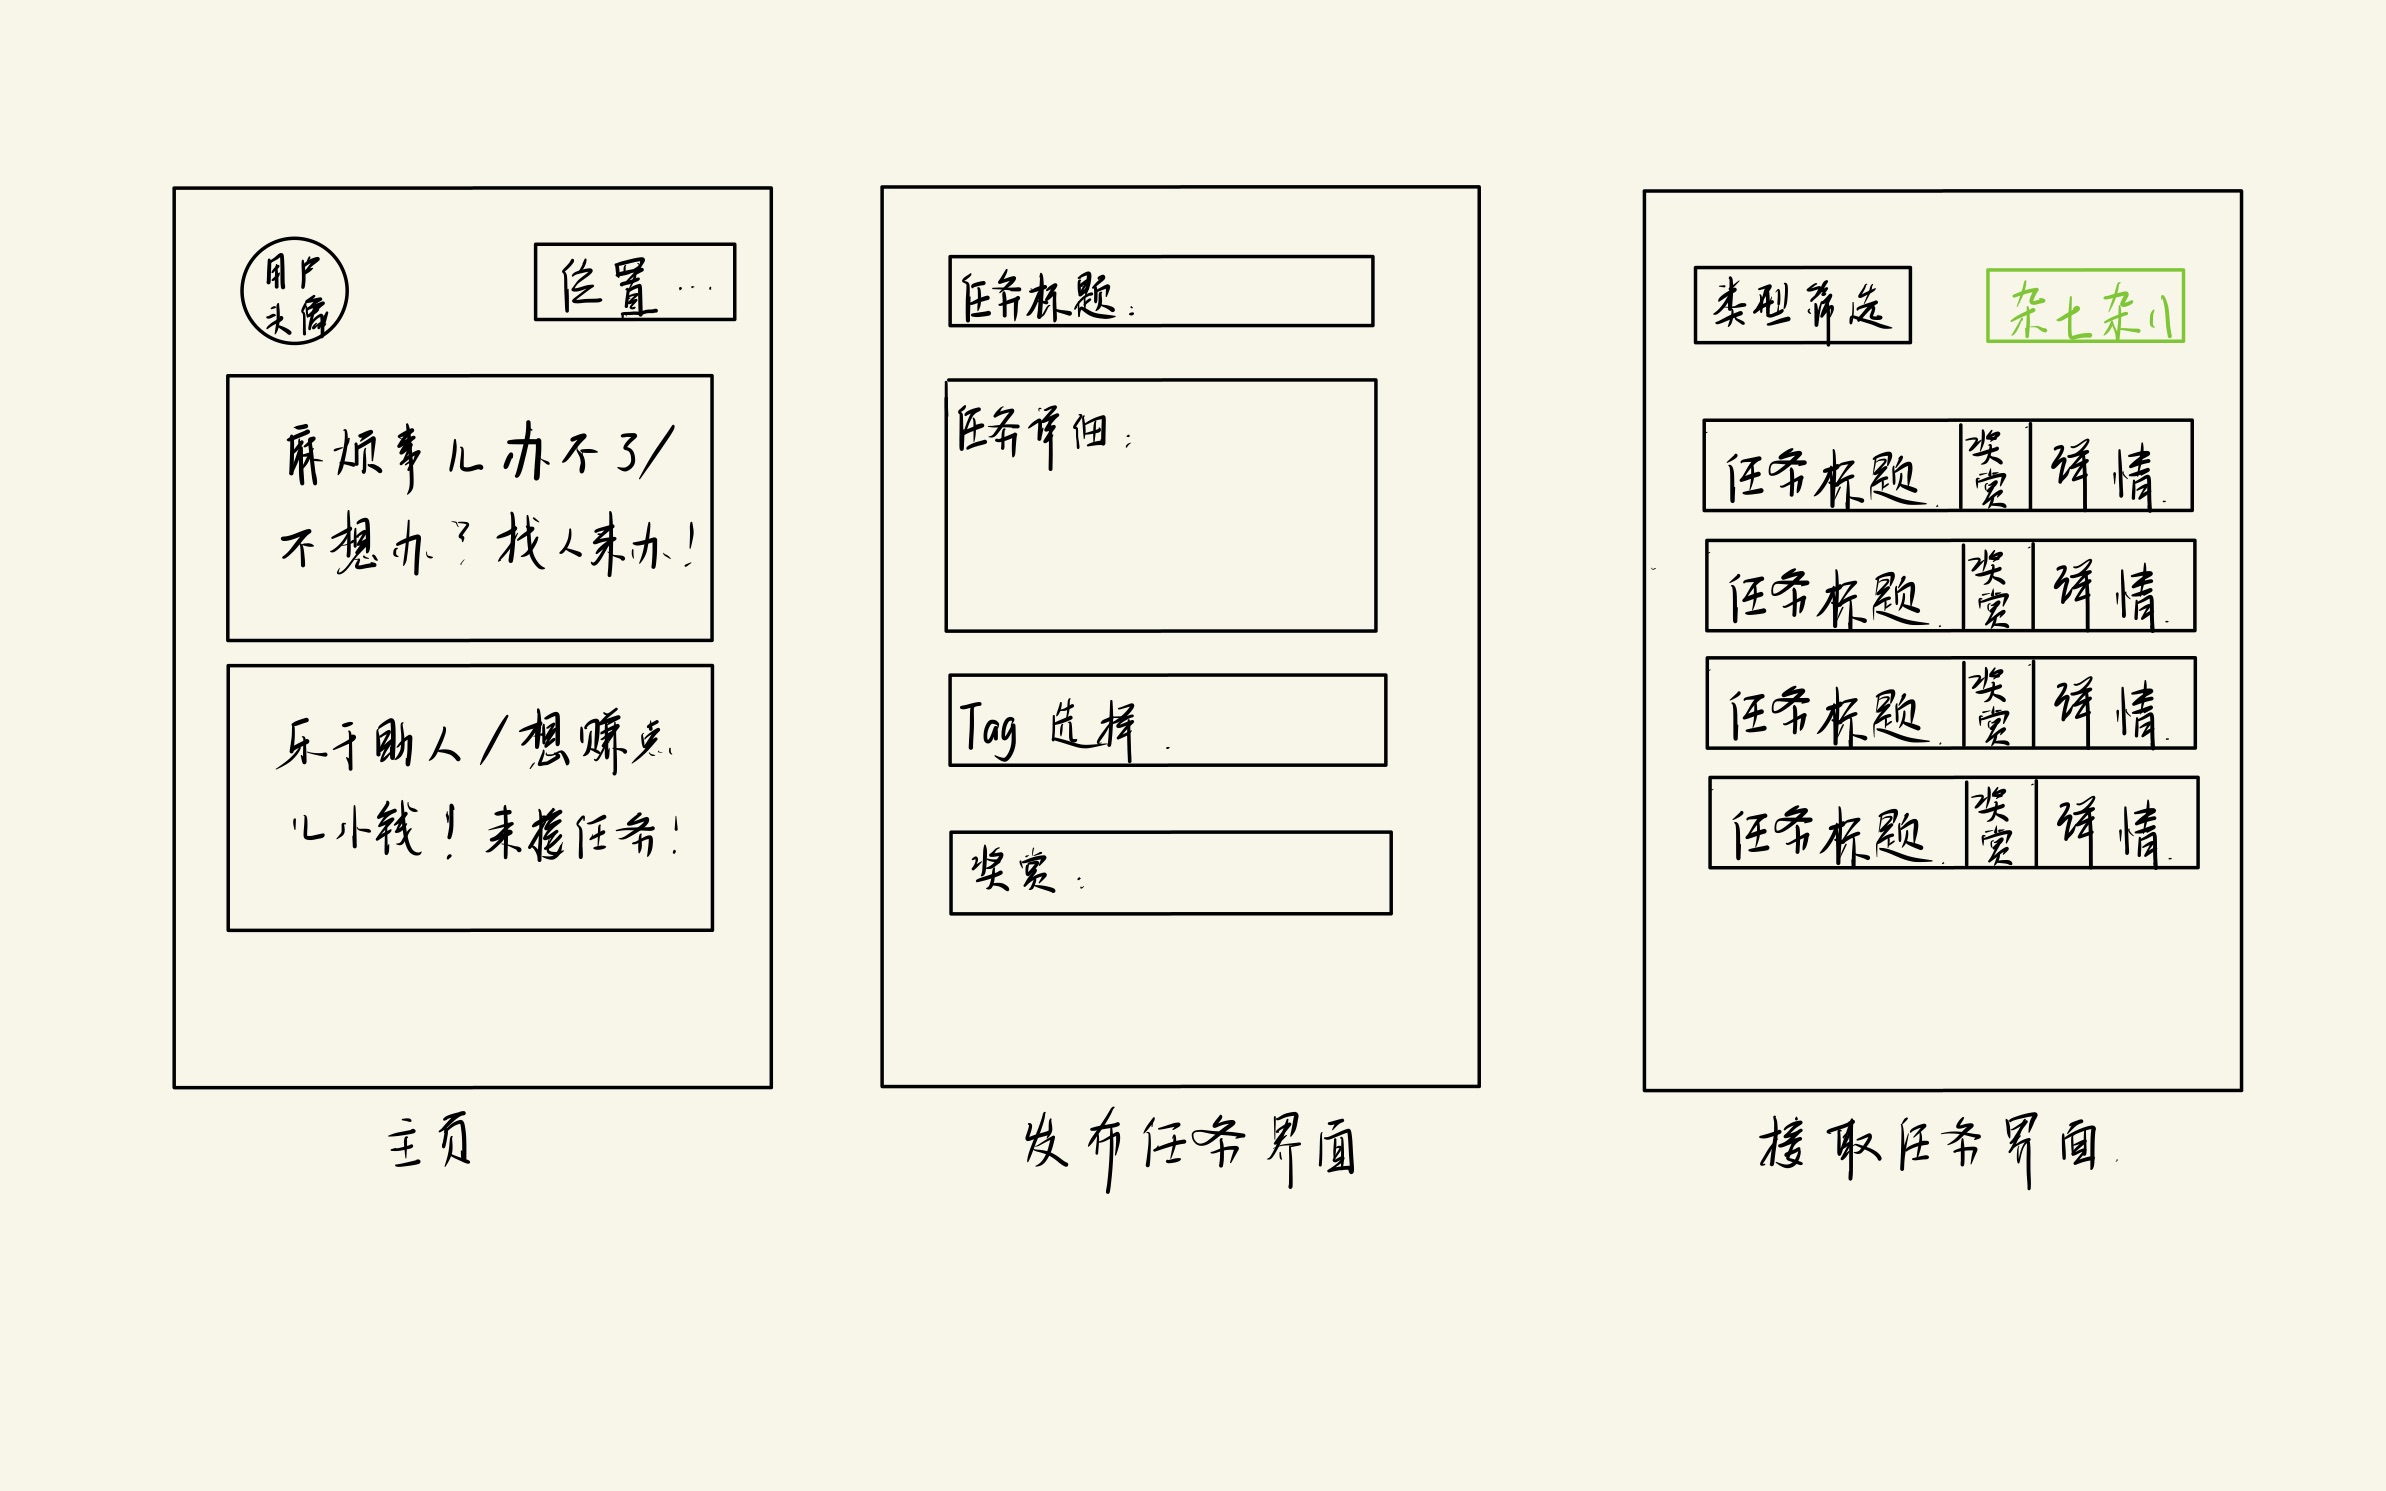 用户
头像
位置...
麻烦事儿办不了/
不想办？找人来办！
乐于助人/想赚点
儿小钱！来接任务！
主页
任务标题：
任务详细：
Tag 选择
奖赏：
发布任务界面
类型筛选
杂七杂八
任务标题 奖赏 详情
任务标题 奖赏 详情
任务标题 奖赏 详情
任务标题 奖赏 详情
接取任务界面